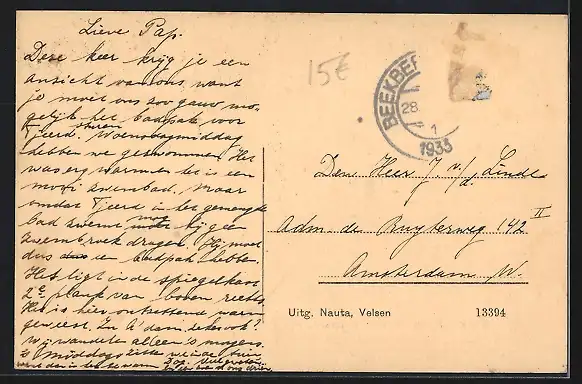 Lieve Pap.
Deze keer krijg je een
ansicht van ons, want
je moet ons zoo gauw mo-
gelijk het badpak voor
Tjeerd sturen. Woensdagmiddag
hebben we gezwommen. Het
was erg warm en het is een
mooi zwembad. Maar
omdat Tjeerd in het gemengde
bad zwemt mag hij geen
zwembroek dragen. Hij moet
dus een badpak hebben.
Het ligt in de spiegelkast
2e plank van boven rechts.
Het is hier ontzettend warm
geweest. In A'dam zeker ook?
Wij wandelen alleen 's morgens.
's Middags zitten we in de tuin
Dag. Veel groeten
15€
BEEKBER
28.
1
1933
Den Heer J. v/d. Linde
Adm. de Ruyterweg 142 II
Amsterdam W.
Uitg. Nauta, Velsen 13394